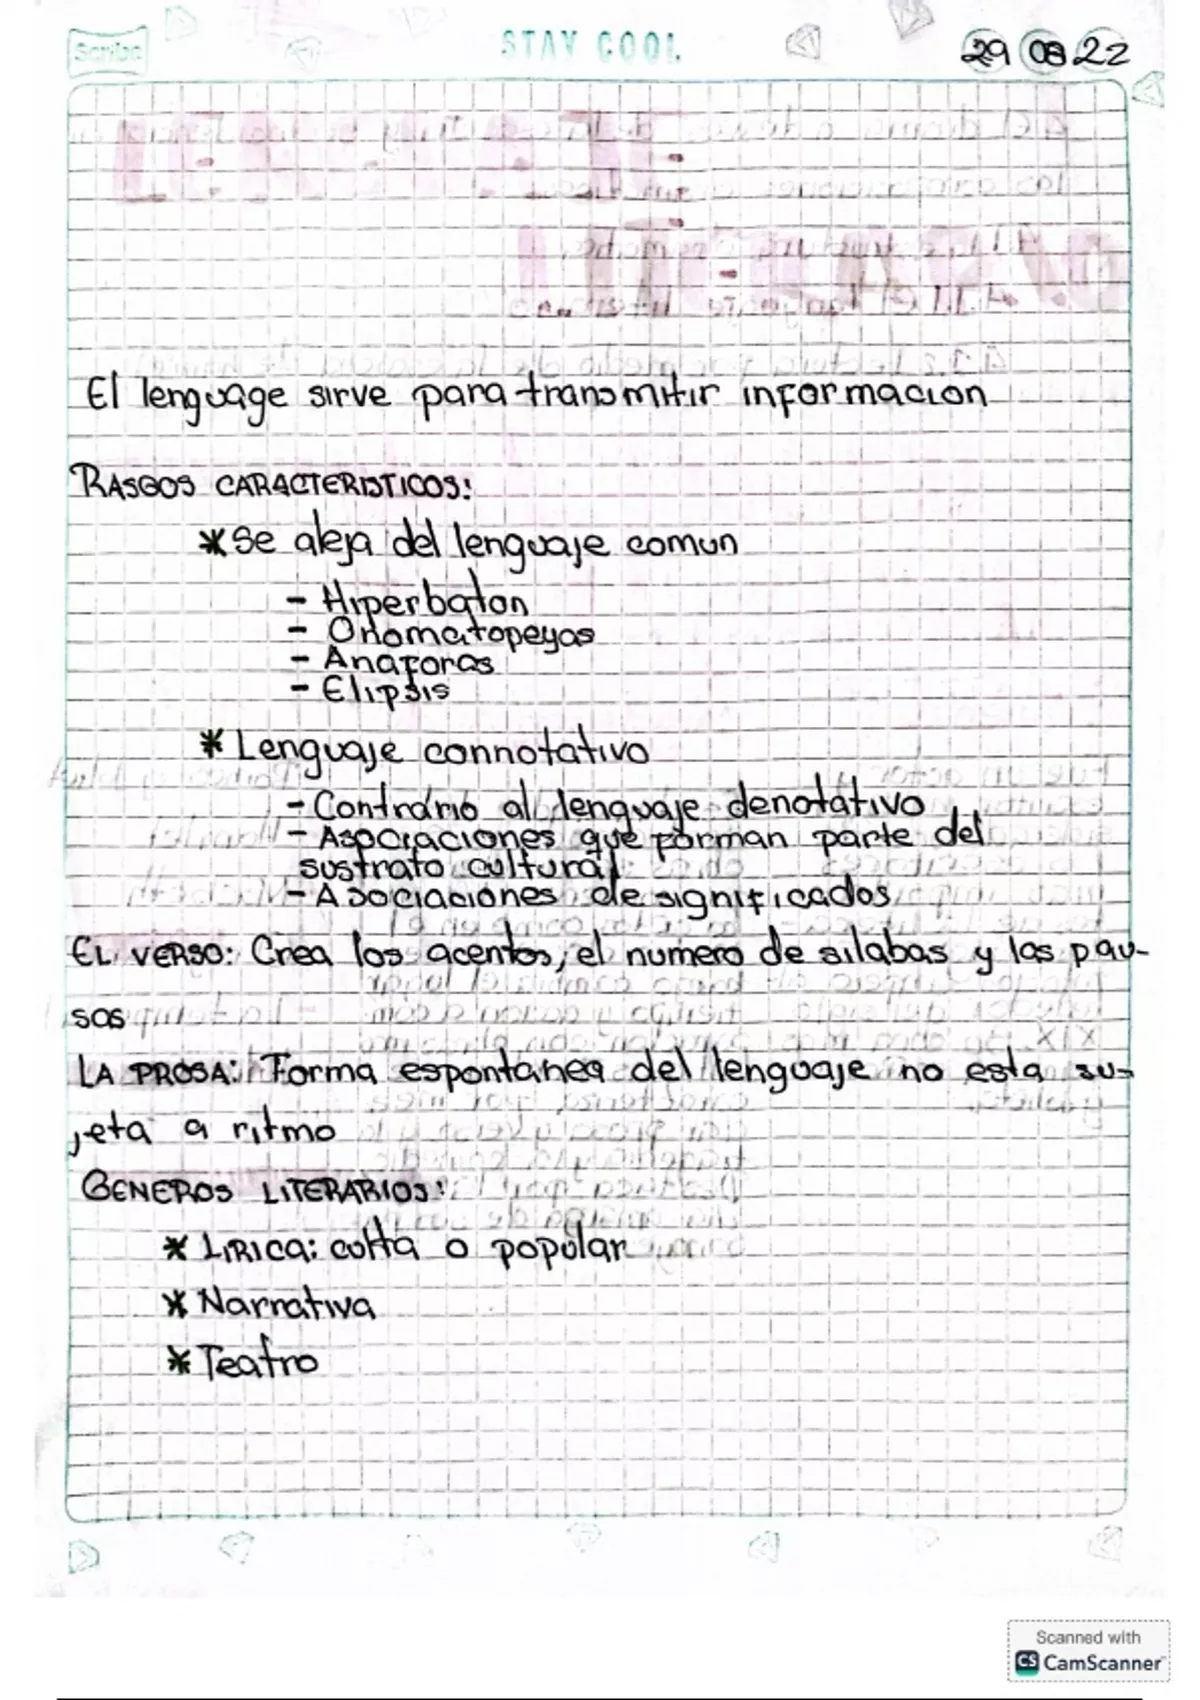 Scribe
STAY COOL
29 08 22
El lenguage sirve para transmitir informacion
RASGOS CARACTERISTICOS:
* Se aleja del lenguaje comun
- Hiperbaton
- Onomatopeyas
- Anaforas
- Elipsis
* Lenguaje connotativo
- Contrario al lenguaje denotativo
- Asociaciones que forman parte del
sustrato cultural
- Asociaciones de significados
EL VERSO: Crea los acentos, el numero de silabas y las pau-
sas
LA PROSA: Forma espontanea del lenguaje no esta su-
jeta a ritmo
GENEROS LITERARIOS:
* LIRICA: culta o popular
* Narrativa
* Teatro
Scanned with
CS CamScanner